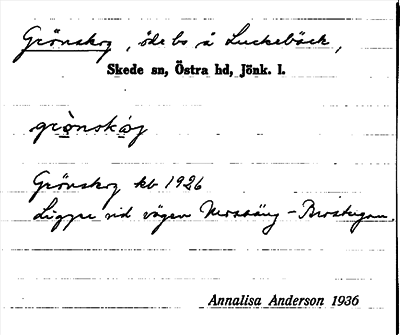 Grönskog, öde bs å Luckebäck,
Skede sn, Östra hd, Jönk. l.
grònskóg
Grönskog kb 1926
Ligger vid vägen Morsäng -
Annalisa Anderson 1936